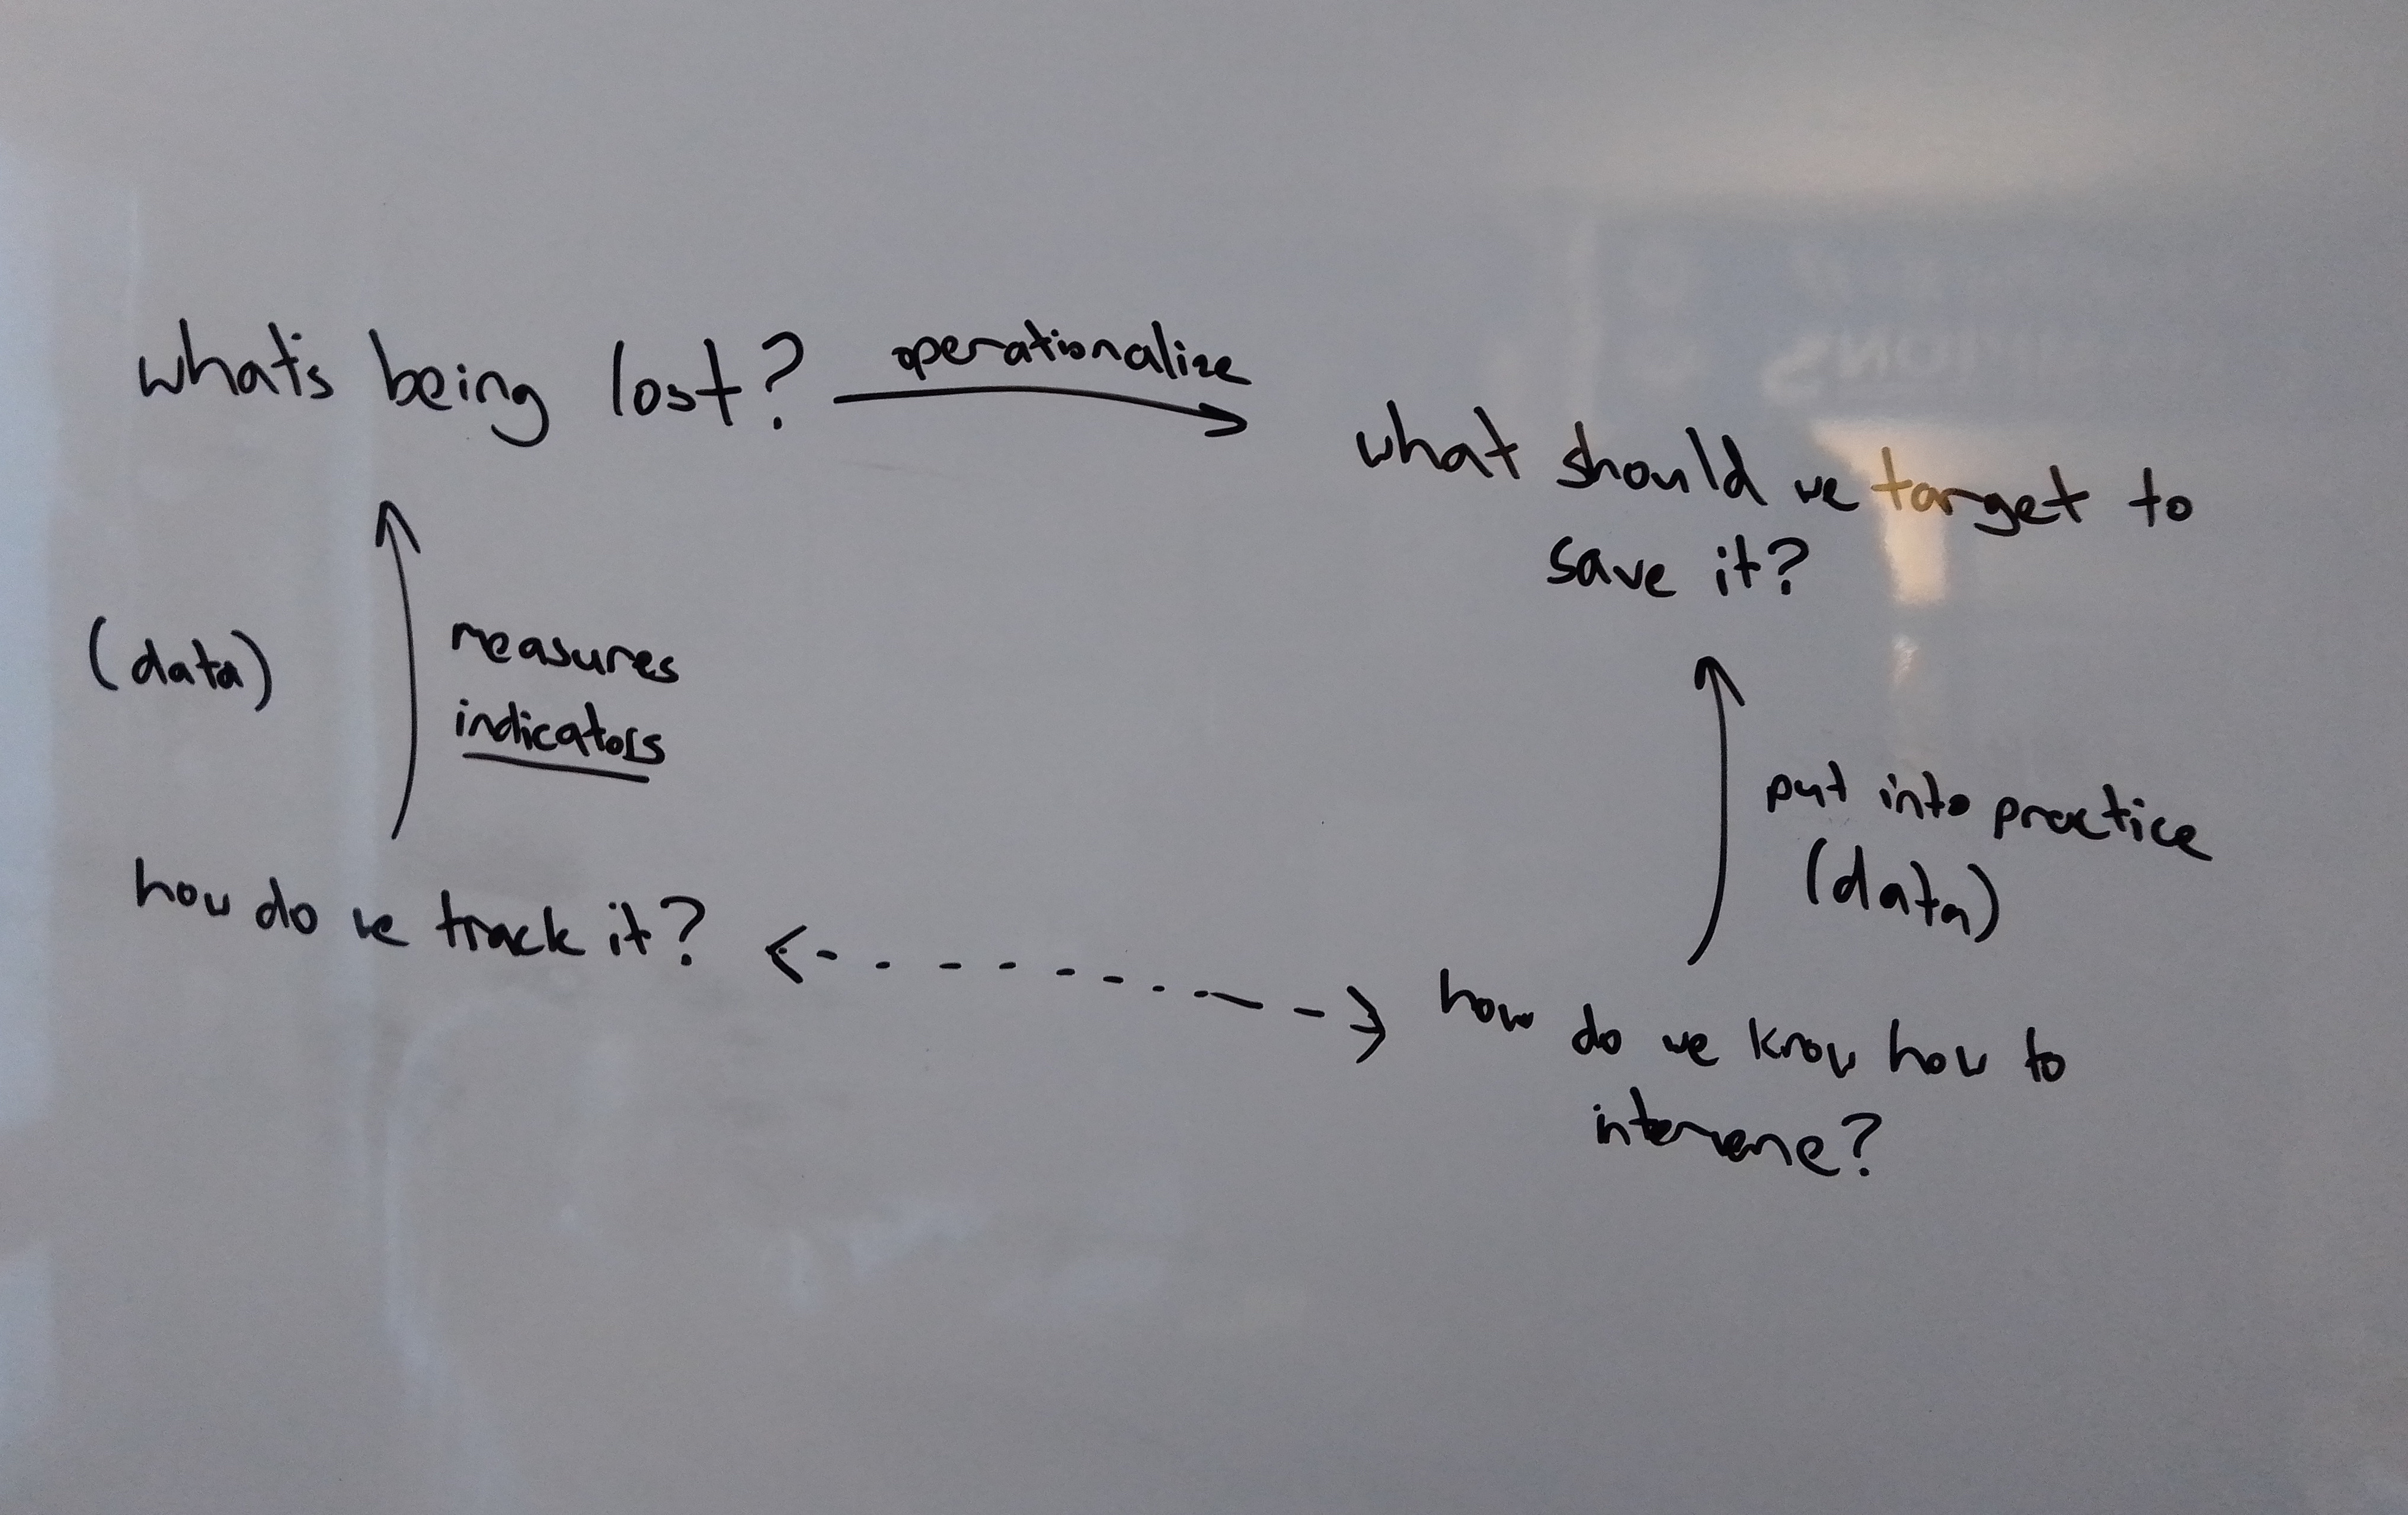 what's being lost?
operationalize
what should we target to
save it?
(data)
measures
indicators
put into practice
(data)
how do we track it?
how do we know how to
intervene?